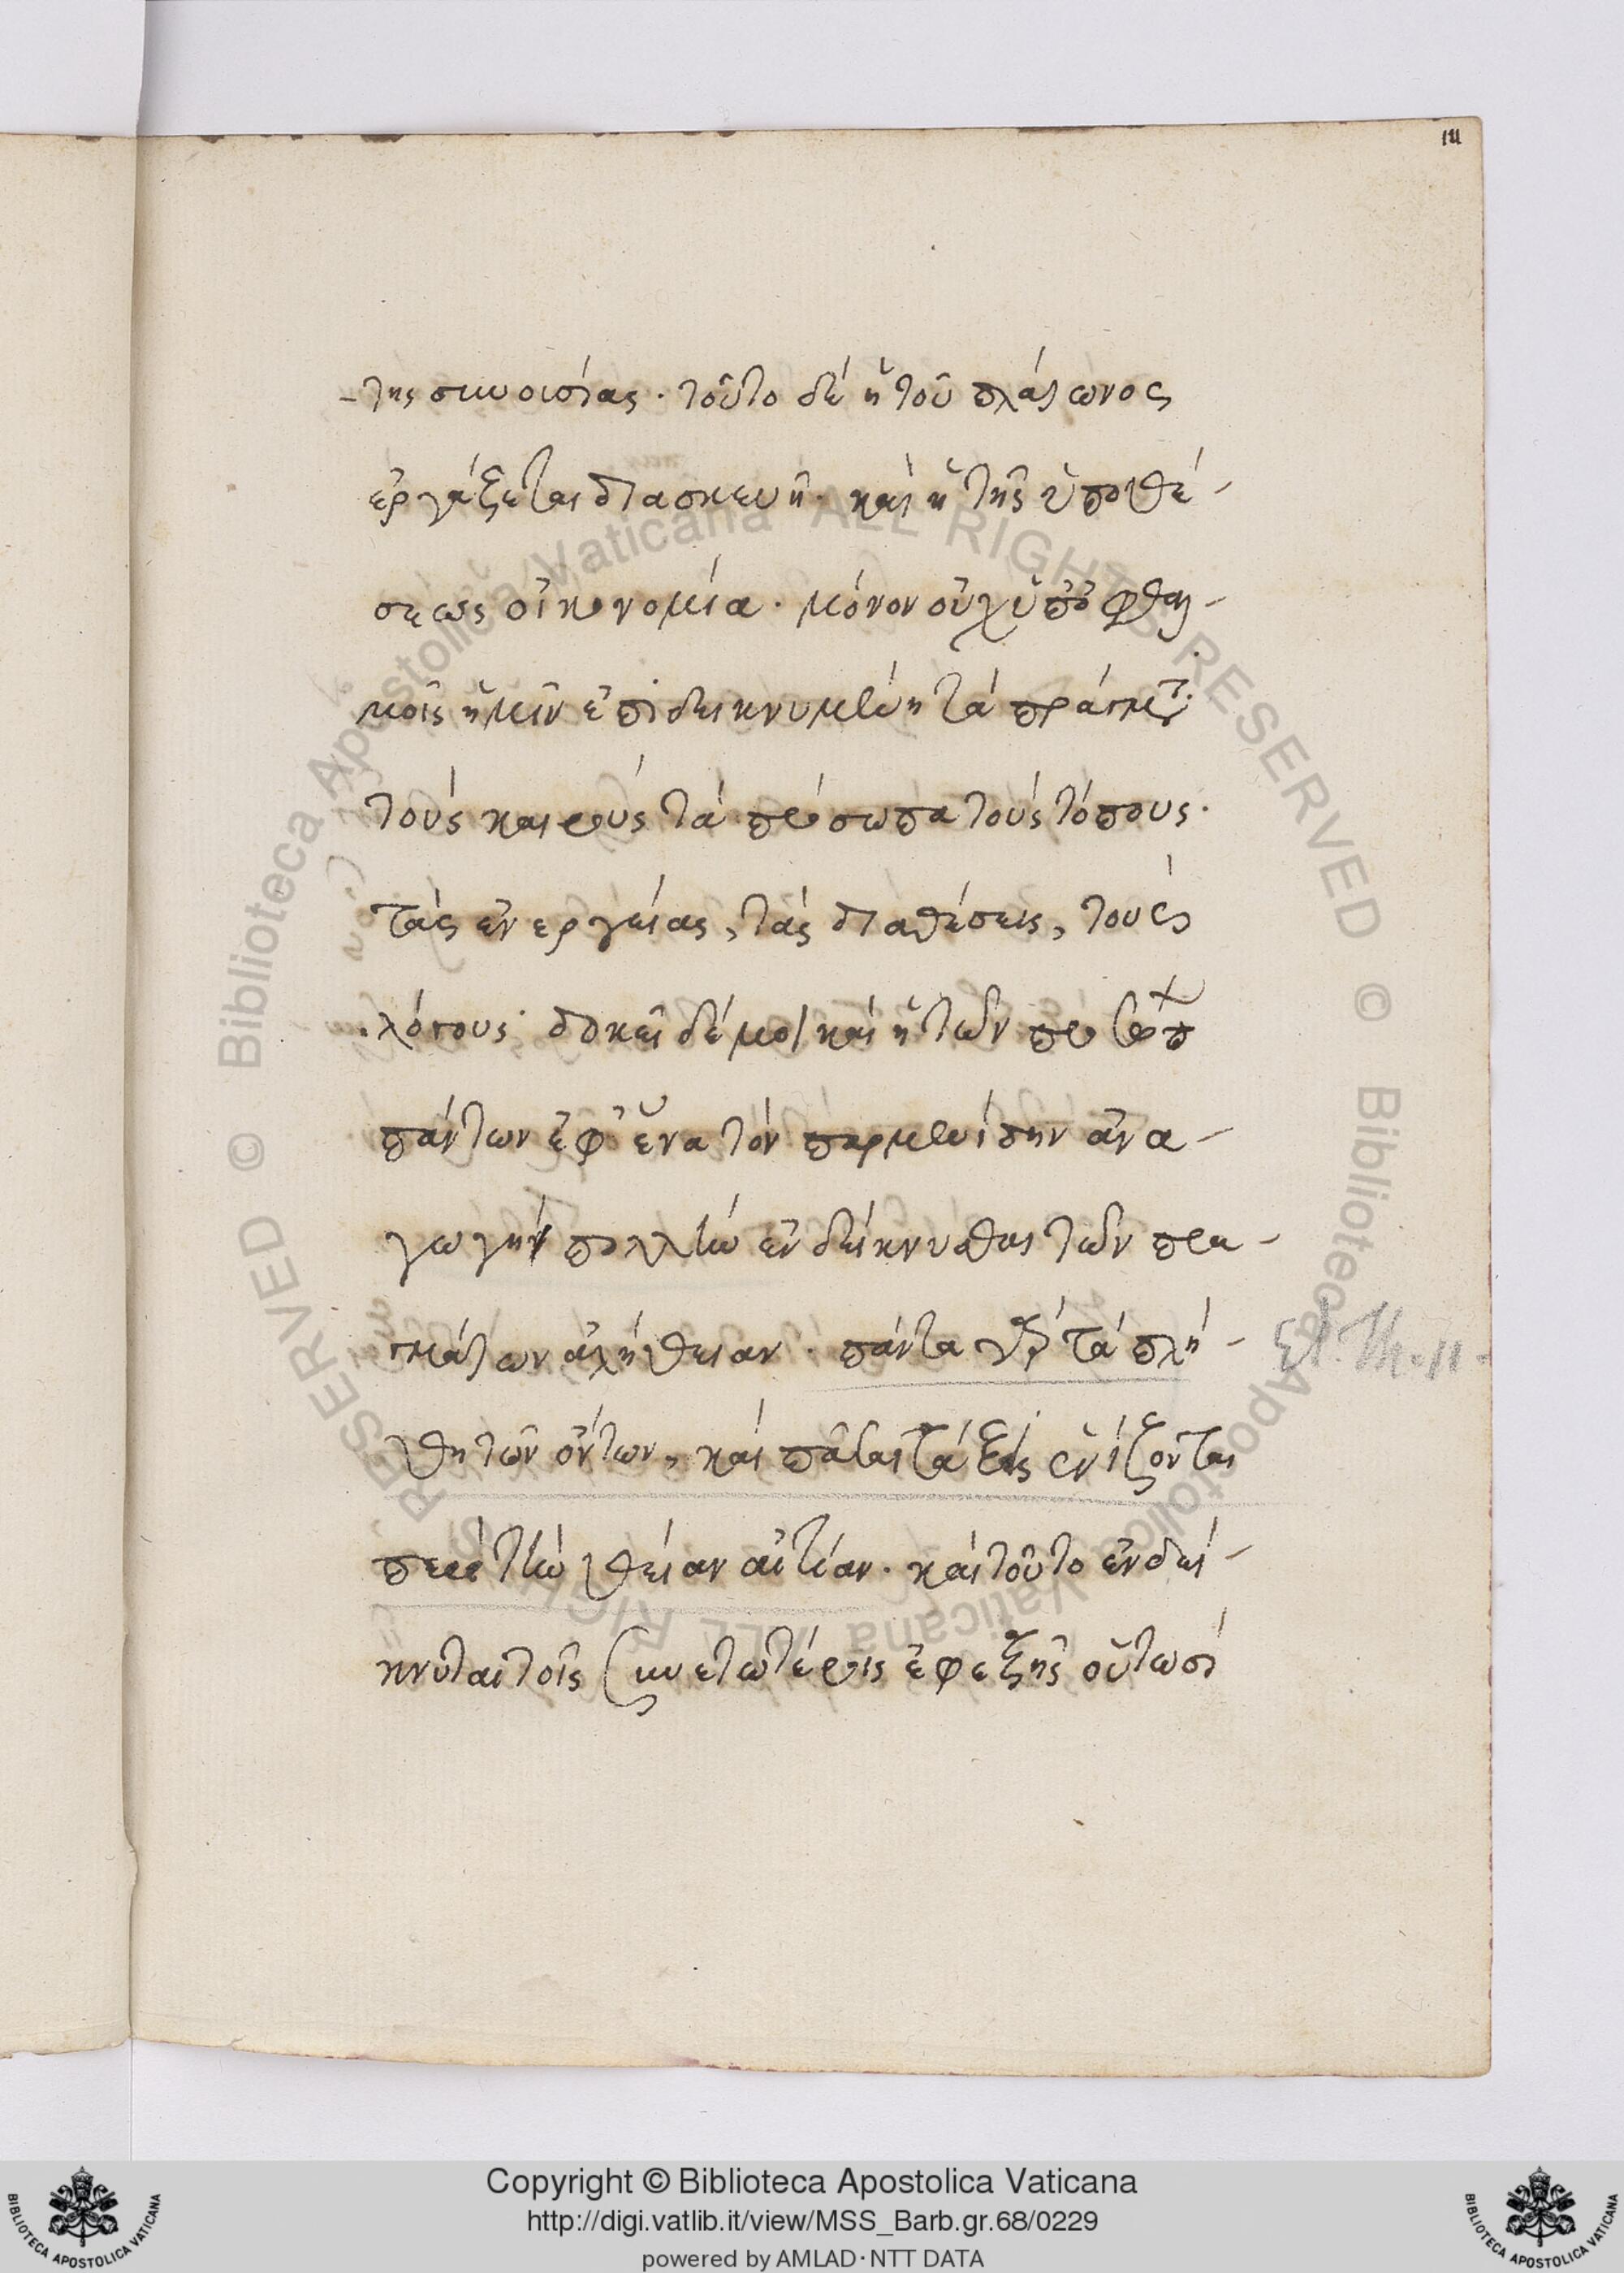 111
-της συνουσίας · τοῦτο δὲ ἡ τοῦ πλάτωνος
ἐργάζεται διασκευὴ · καὶ ἡ τῆς ὑποθέ-
σεως οἰκονομία · μόνον οὐχὶ ὑπ' ὀφθαλ-
μοῖς ἡμῖν ἐπιδεικνυμένη τὰ πράγματ
τοὺς καιροὺς τὰ πρόσωπα τοὺς τόπους ·
τὰς ἐνεργείας, τὰς διαθέσεις, τοὺς
λόγους · δοκεῖ δέ μοι καὶ ἡ τῶν
πάντων ἐφ' ἕνα τὸν παρμενίδην ἀνα-
γωγὴ πολλὴν ἐνδείκνυσθαι τῶν πρα-
γμάτων ἀλήθειαν · πάντα γὰρ τὰ πλή-
θη τῶν ὄντων, καὶ πᾶσαι τάξεις ἑνίζονται
περὶ τὴν θείαν αἰτίαν · καὶ τοῦτο ἐνδεί-
κνυται τοῖς συνετωτέροις ἐφεξῆς οὑτωσὶ
Biblioteca Apostolica Vaticana ALL RIGHTS RESERVED ©
Biblioteca Apostolica Vaticana ALL RIGHTS RESERVED ©
Copyright © Biblioteca Apostolica Vaticana
http://digi.vatlib.it/view/MSS_Barb.gr.68/0229
powered by AMLAD · NTT DATA
BIBLIOTECA APOSTOLICA VATICANA
BIBLIOTECA APOSTOLICA VATICANA